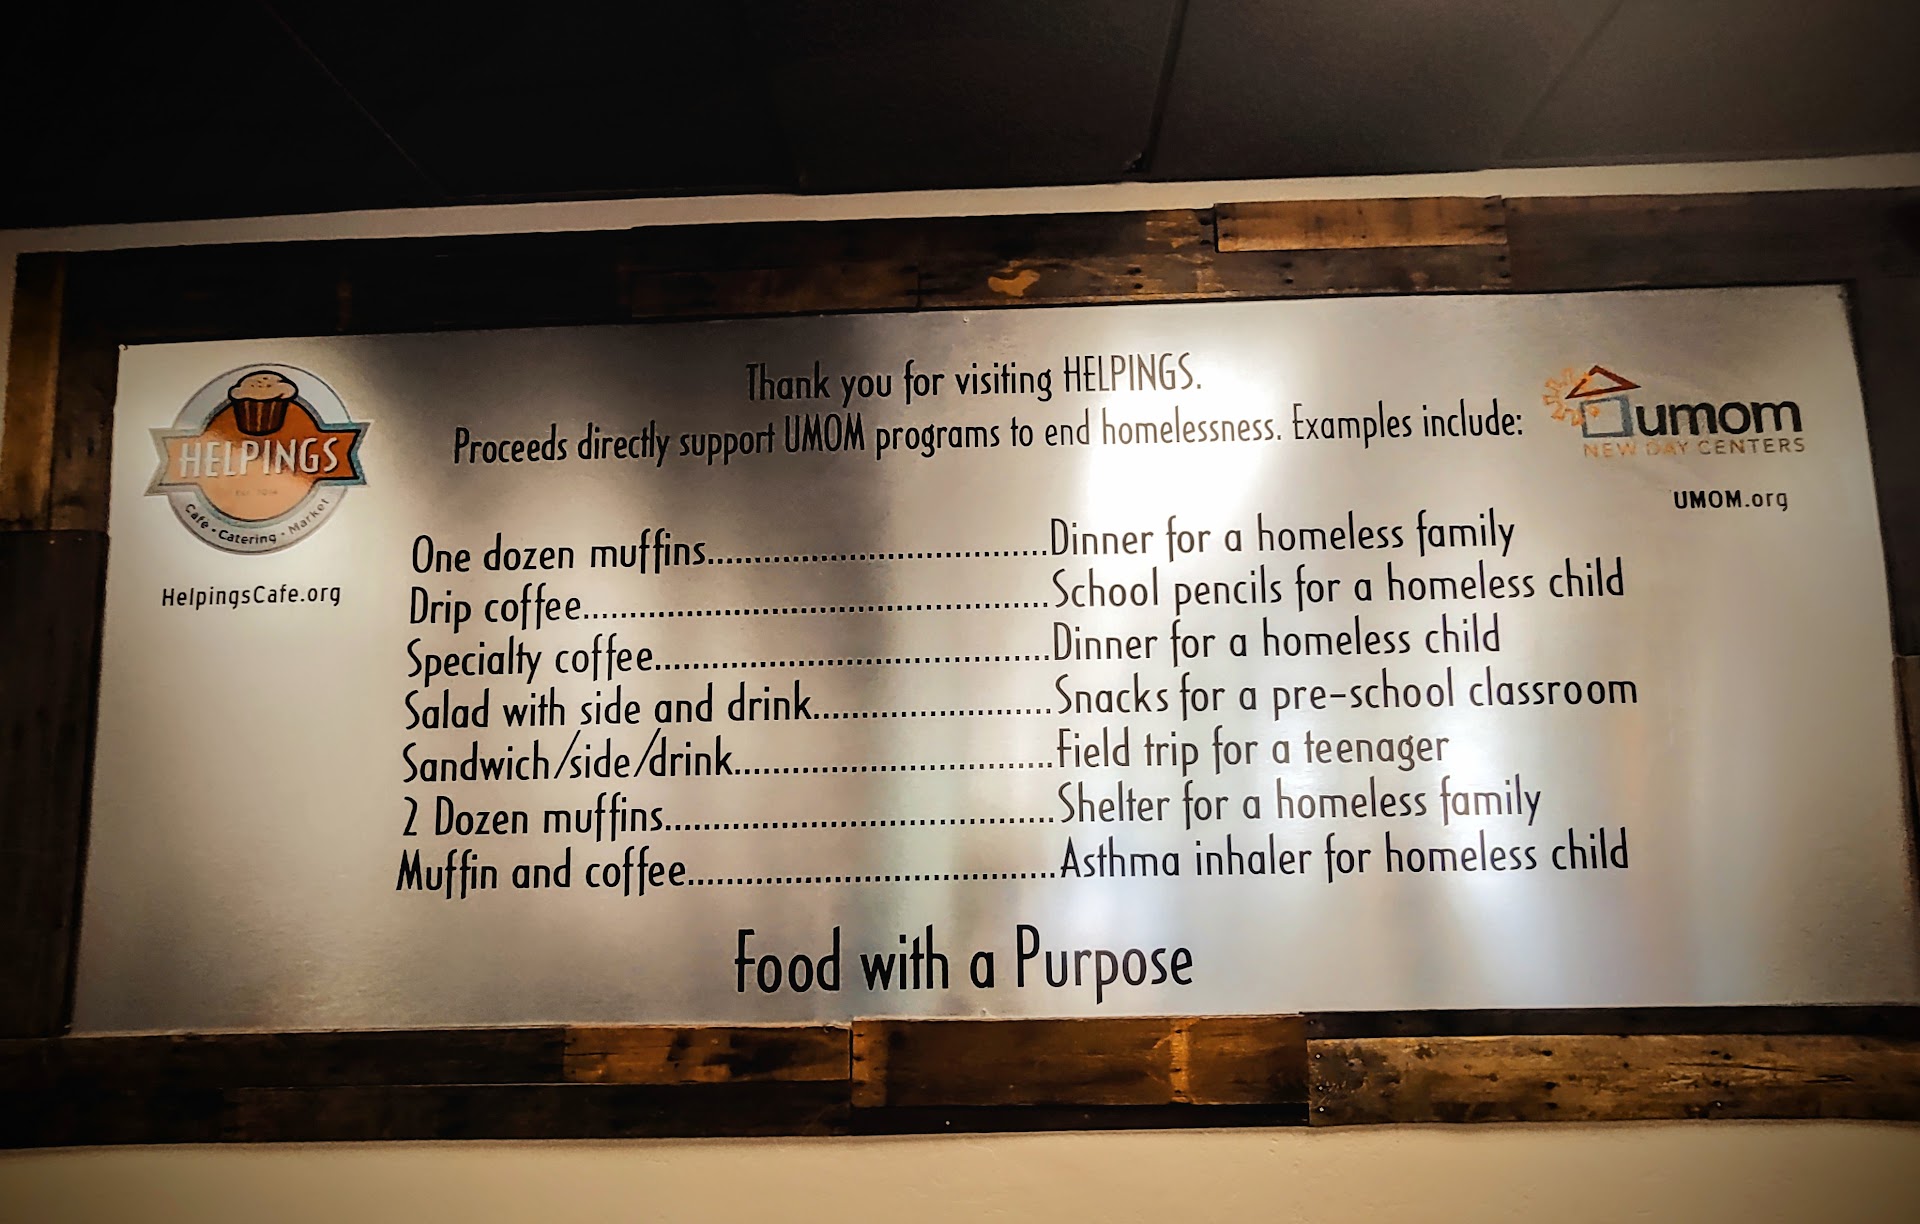 Thank you for visiting HELPINGS.
Proceeds directly support UMOM programs to end homelessness. Examples include:
HELPINGS
Cafe • Catering • Market
HelpingsCafe.org
umom
NEW DAY CENTERS
UMOM.org
One dozen muffins....................................Dinner for a homeless family
Drip coffee.................................................School pencils for a homeless child
Specialty coffee..........................................Dinner for a homeless child
Salad with side and drink.........................Snacks for a pre-school classroom
Sandwich/side/drink..................................Field trip for a teenager
2 Dozen muffins.........................................Shelter for a homeless family
Muffin and coffee.......................................Asthma inhaler for homeless child
Food with a Purpose